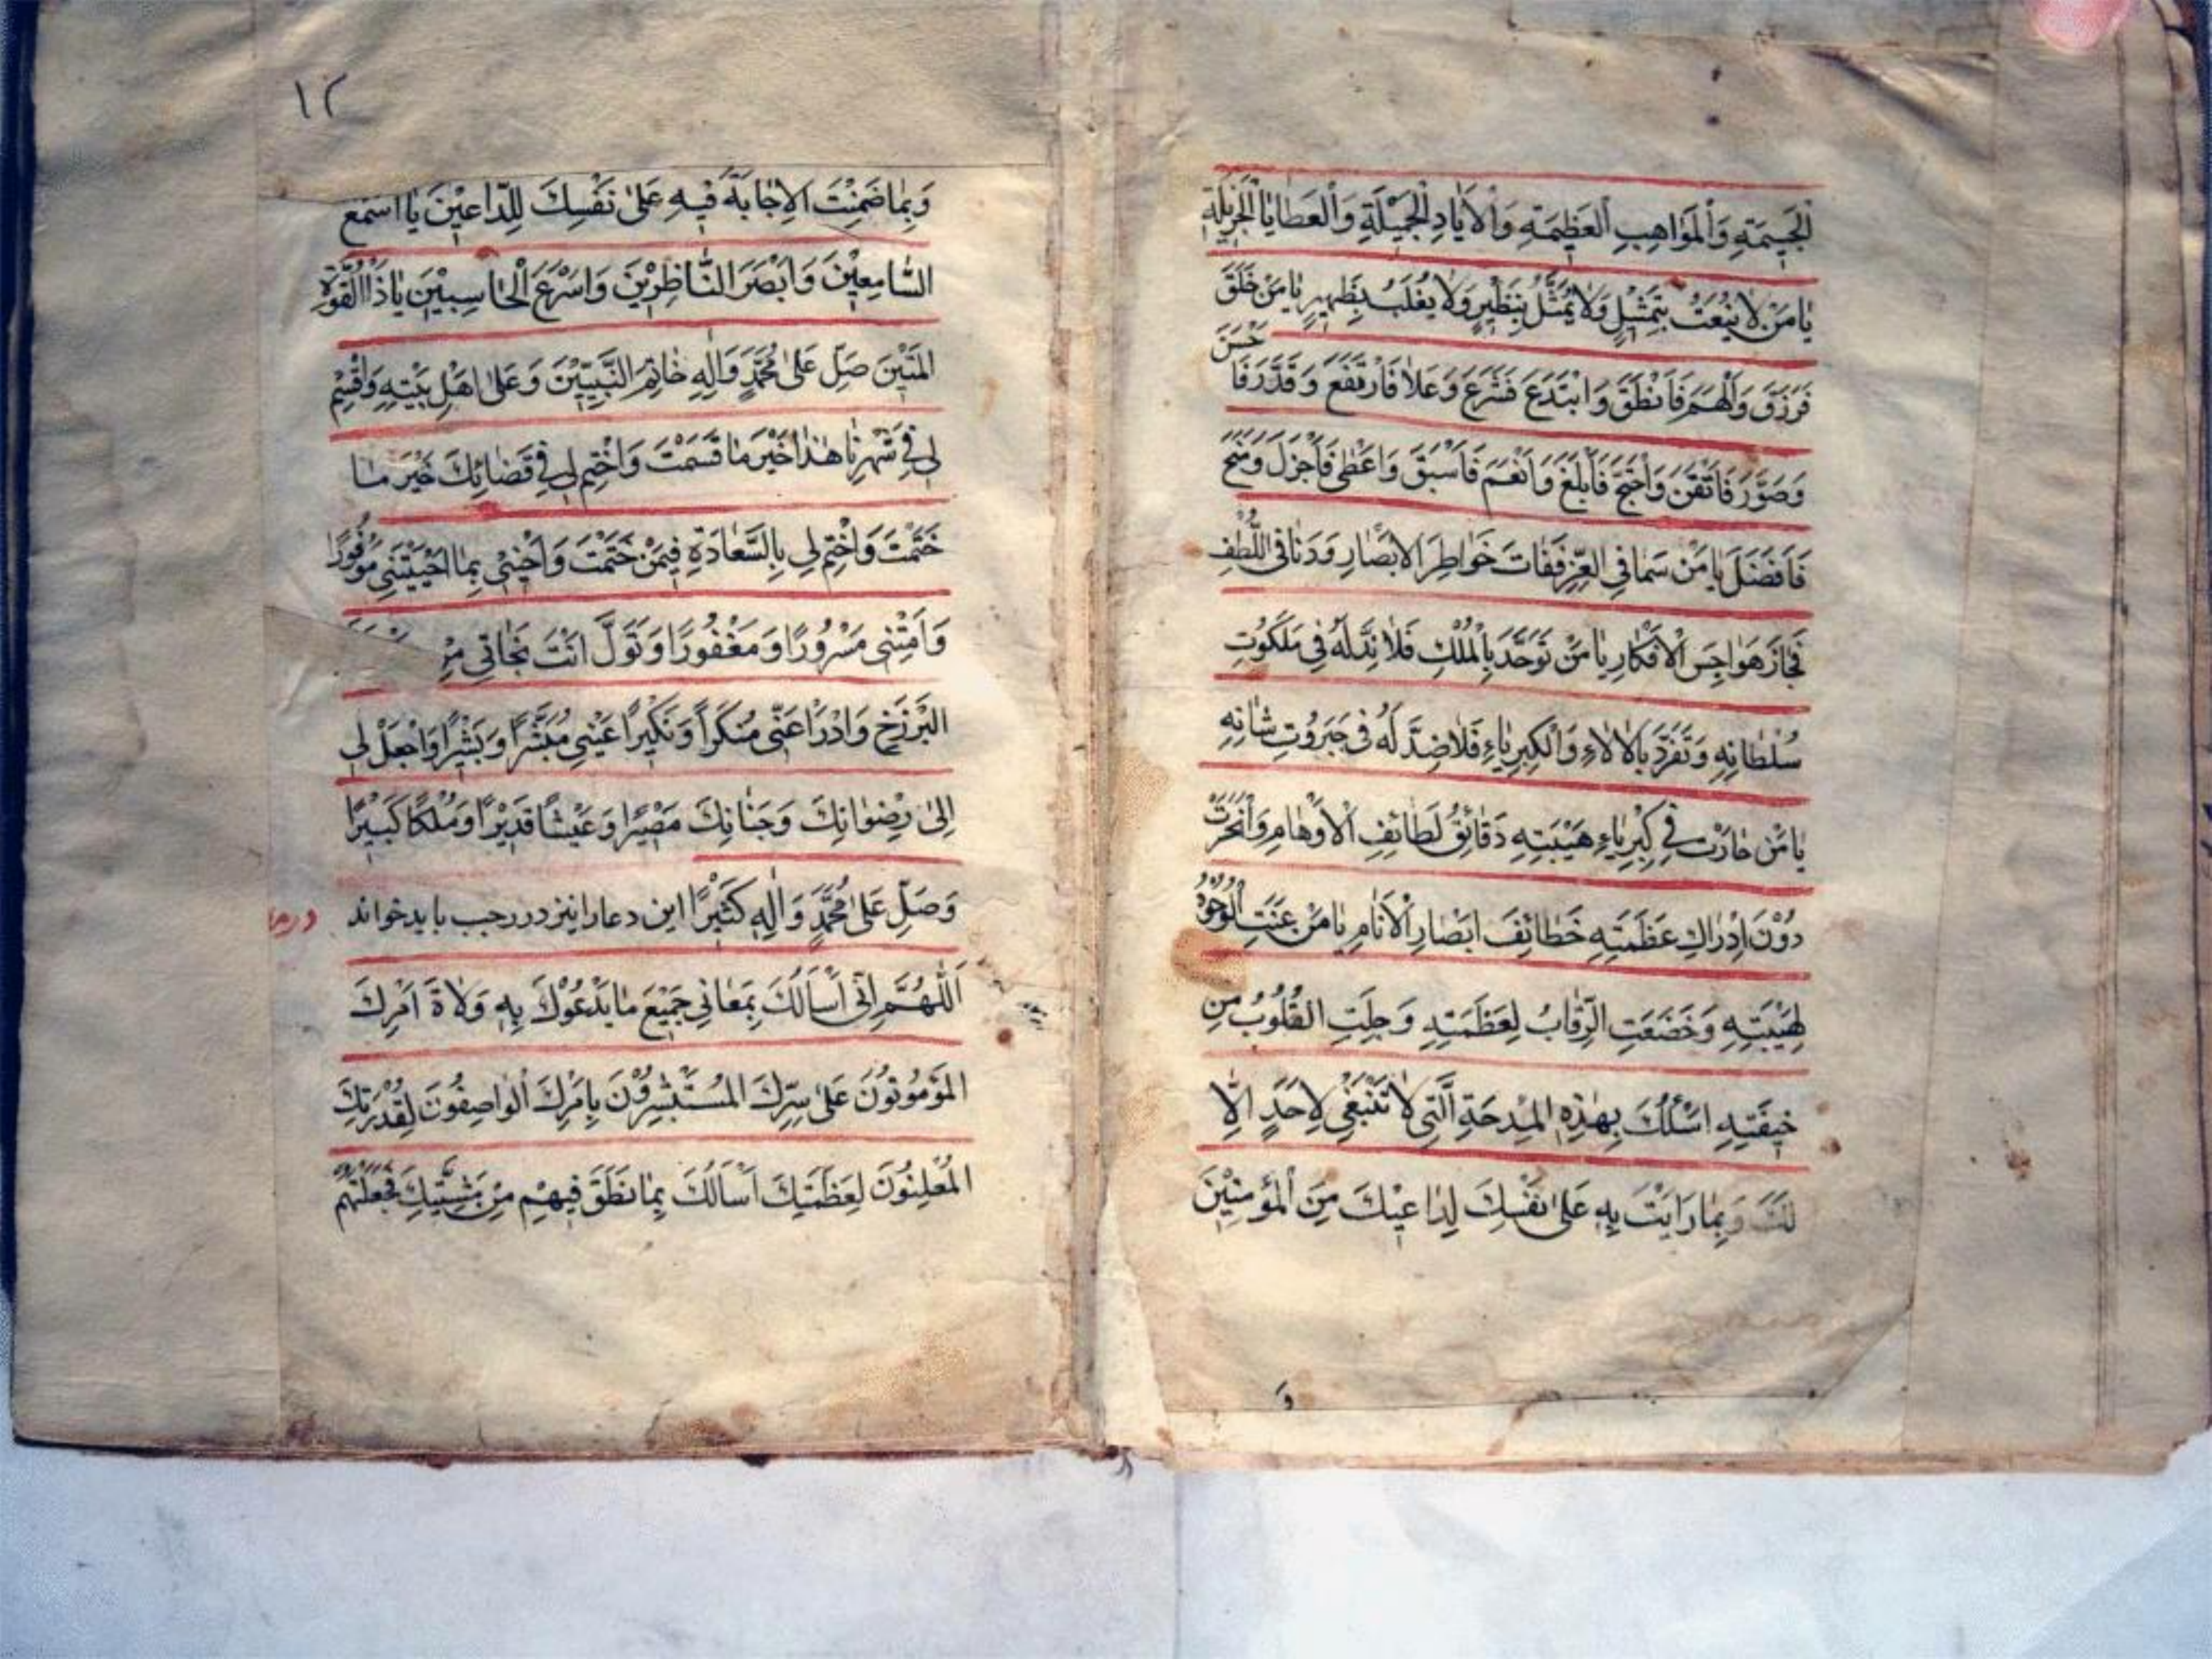 الْجَسِيمَةِ وَالْمَوَاهِبِ الْعَظِيمَةِ وَالْأَيَادِ الْجَمِيْلَةِ وَالْعَطَايَا الْجَزِيْلَةِ
يَا مَنْ لَا يُنْعَتُ بِتَمْثِيلٍ وَلَا يُمَثَّلُ بِنَظِيْرٍ وَلَا يُغْلَبُ بِظَهِيرٍ يَا مَنْ خَلَقَ
فَرَزَقَ وَاَلْهَمَ فَاَنْطَقَ وَابْتَدَعَ فَشَرَعَ وَعَلَا فَارْتَفَعَ وَقَدَّرَ فَا حْسَنَ
وَصَوَّرَ فَاَتْقَنَ وَاحْتَجَّ فَاَبْلَغَ وَاَنْعَمَ فَاَسْبَقَ وَاَعْطٰى فَاَجْزَلَ وَمَنَحَ
فَاَفْضَلَ يَا مَنْ سَمَا فِي الْعِزِّ فَفَاتَ خَوَاطِرَ الْاَبْصَارِ وَدَنَا فِى اللُّطْفِ
فَجَازَ هَوَاجِسَ الْاَفْكَارِ يَا مَنْ تَوَحَّدَ بِالْمُلْكِ فَلَا نِدَّ لَهُ فِى مَلَكُوْتِ
سُلْطَانِهِ وَتَفَرَّدَ بِالْاٰلَاءِ وَالْكِبْرِيَاءِ فَلَا ضِدَّ لَهُ فِى جَبَرُوْتِ شَانِهِ
يَا مَنْ حَارَتْ فِي كِبْرِيَاءِ هَيْبَتِهِ دَقَائِقُ لَطَائِفِ الْاَوْهَامِ وَانْحَرَتْ
دُوْنَ اِدْرَاكِ عَظَمَتِهِ خَطَائِفَ اَبْصَارِ الْاَنَامِ يَا مَنْ عَنَتِ الْوُجُوْهُ
لِهَيْبَتِهِ وَخَضَعَتِ الرِّقَابُ لِعَظَمَتِهِ وَجِلَتِ الْقُلُوْبُ مِنِ
خِيفَتِهِ اَسْئَلُكَ بِهٰذِهِ الْمِدْحَةِ الَّتِى لَا تَنْبَغِي لِاَحَدٍ اِلَّا
لَكَ وَبِمَا رَاَيْتَ بِهِ عَلىٰ نَفْسِكَ لِدَاعِيْكَ مِنَ الْمُؤْمِنِيْنَ
١٢
وَبِمَا ضَمِنْتَ الْاِجَابَةَ فِيْهِ عَلىٰ نَفْسِكَ لِلدَّاعِيْنَ يَا اَسْمَعَ
السَّامِعِيْنَ وَاَبْصَرَ النَّاظِرِيْنَ وَاَسْرَعَ الْحَاسِبِيْنَ يَا ذَا الْقُوَّةِ
الْمَتِيْنَ صَلِّ عَلىٰ مُحَمَّدٍ وَاٰلِهِ خَاتِمِ النَّبِيِّيْنَ وَعَلىٰ اَهْلِ بَيْتِهِ وَاقْسِمْ
لِى فِي شَهْرِنَا هٰذَا خَيْرَ مَا قَسَمْتَ وَاخْتِمْ لِى فِي قَضَائِكَ خَيْرَ مَا
خَتَمْتَ وَاخْتِمْ لِي بِالسَّعَادَةِ فِيْمَنْ خَتَمْتَ وَاَحْيِنِى بِمَا اَحْيَيْتَنِي مَوْفُورًا
وَاَمِتْنِى مَسْرُورًا وَمَغْفُورًا وَتَوَلَّ اَنْتَ نَجَاتِي مِنْ
الْبَرْزَخِ وَادْرَأْ عَنِّى مُنْكَرًا وَنَكِيْرًا عَيْنِي مُبَشِّرًا وَبَشِيْرًا وَاجْعَلْ لِى
اِلىٰ رِضْوَانِكَ وَجَنَانِكَ مَصِيْرًا وَعَيْشًا قَدِيْرًا وَمُلْكًا كَبِيْرًا
وَصَلِّ عَلىٰ مُحَمَّدٍ وَاٰلِهِ كَثِيْرًا این دعا را نیز در رجب باید خواند
اَللّٰهُمَّ اِنِّى اَسْاَلُكَ بِمَعَانِى جَمِيْعِ مَا يَدْعُوْكَ بِهِ وَلَاةَ اَمْرِكَ
الْمَؤْمُوْنُوْنَ عَلىٰ سِرِّكَ الْمُسْتَبْشِرُوْنَ بِاَمْرِكَ الْوَاصِفُوْنَ لِقُدْرَتِكَ
الْمُعْلِنُوْنَ لِعَظَمَتِكَ اَسْاَلُكَ بِمَا نَطَقَ فِيْهِمْ مِنْ مَشِيَّتِكَ فَجَعَلْتَهُمْ